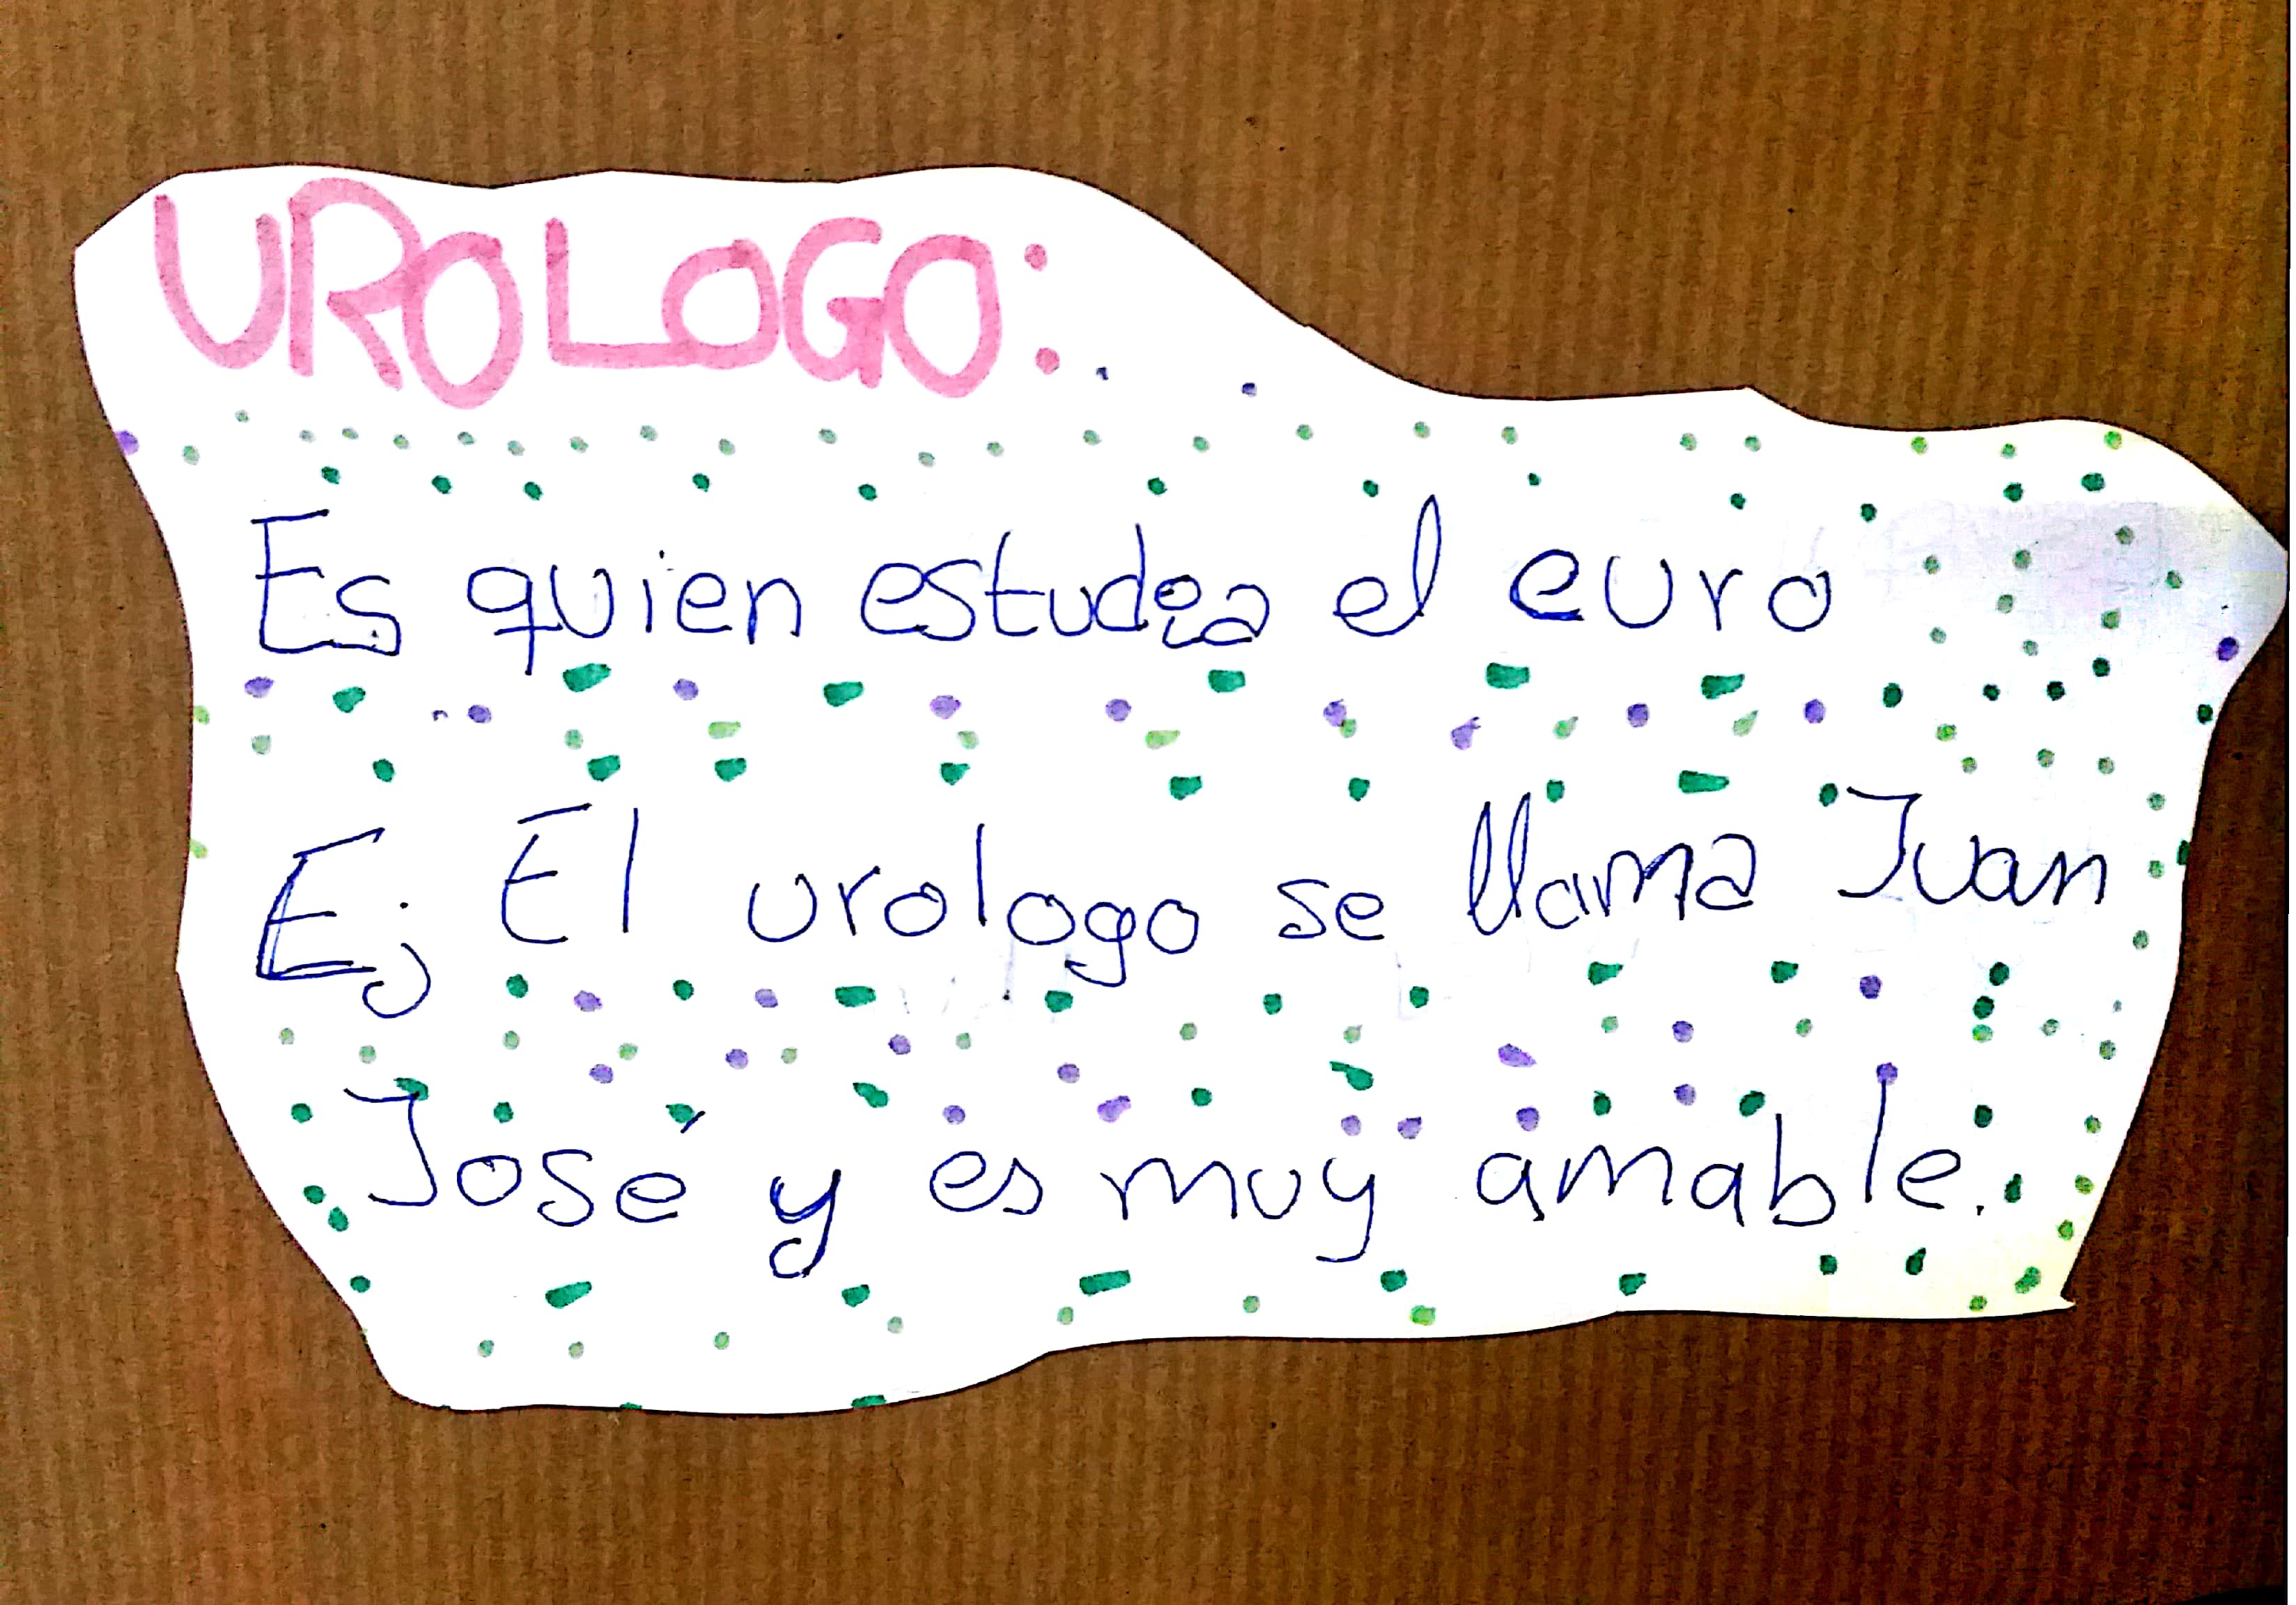 UROLOGO:
Es quien estudia el euro
Ej El urologo se llama Juan
José y es muy amable.